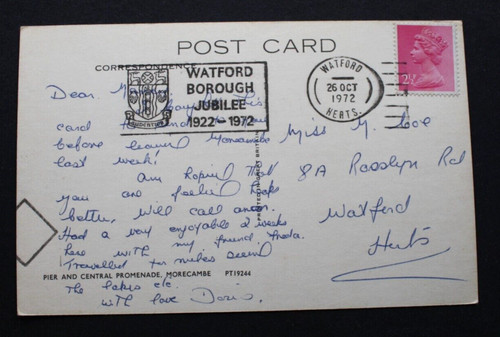 POST CARD
CORRESPONDENCE
WATFORD
BOROUGH
JUBILEE
1922 - 1972
AUDENTIOR
WATFORD
26 OCT
1972
HERTS.
2½
Dear
card to
before leaving Morecambe
last week!
Am hoping that
you are feeling
better, will call anon.
Had a very enjoyable 2 weeks
here with my friend Freda.
Travelled for miles
The Lakes etc.
with love Doris.
Miss
8A Rosslyn Rd
Watford
Herts
PRINTED IN GREAT BRITAIN
PIER AND CENTRAL PROMENADE, MORECAMBE PT19244